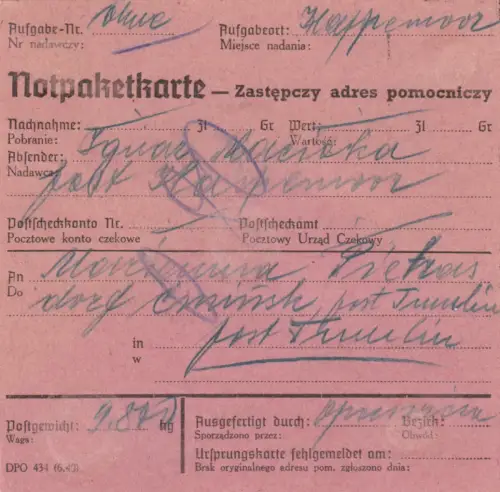 Aufgabe-Nr. ohne Aufgabeort:
Nr nadawczy: Miejsce nadania:
Notpaketkarte — Zastępczy adres pomocniczy
Nachnahme: Zl Gr Wert: Zl Gr
Pobranie: Wartość:
Absender: Ignac
Nadawca: post
Postscheckkonto Nr. Postscheckamt
Pocztowe konto czekowe Pocztowy Urząd Czekowy
An Marianna Pietras
Do dorf post Tumlin
in post Tumlin
w
Postgewicht: kg Ausgefertigt durch: Bezirk:
Waga: Sporządzono przez: Obwód:
Ursprungskarte fehlgemeldet am:
DPO 434 (6.40) Brak oryginalnego adresu pom. zgłoszono dnia: